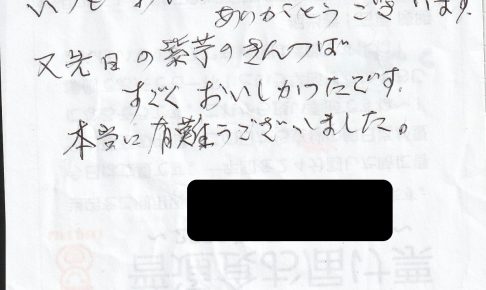 いつも
ありがとうございます。
又先日の紫芋のきんつば
すごくおいしかったです。
本当に有難うございました。